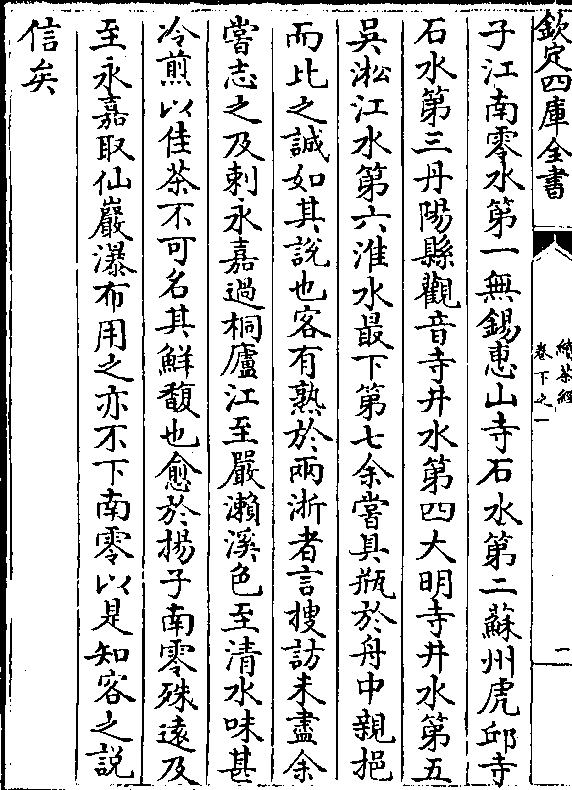 欽定四庫全書
續茶經
卷下之一
二
子江南零水第一無錫惠山寺石水第二蘇州虎邱寺
石水第三丹陽縣觀音寺井水第四大明寺井水第五
吳淞江水第六淮水最下第七余嘗具瓶於舟中親挹
而比之誠如其說也客有熟於兩浙者言搜訪未盡余
嘗志之及刺永嘉過桐廬江至嚴瀨溪色至清水味甚
冷煎以佳茶不可名其鮮馥也愈於揚子南零殊遠及
至永嘉取仙巖瀑布用之亦不下南零以是知客之說
信矣